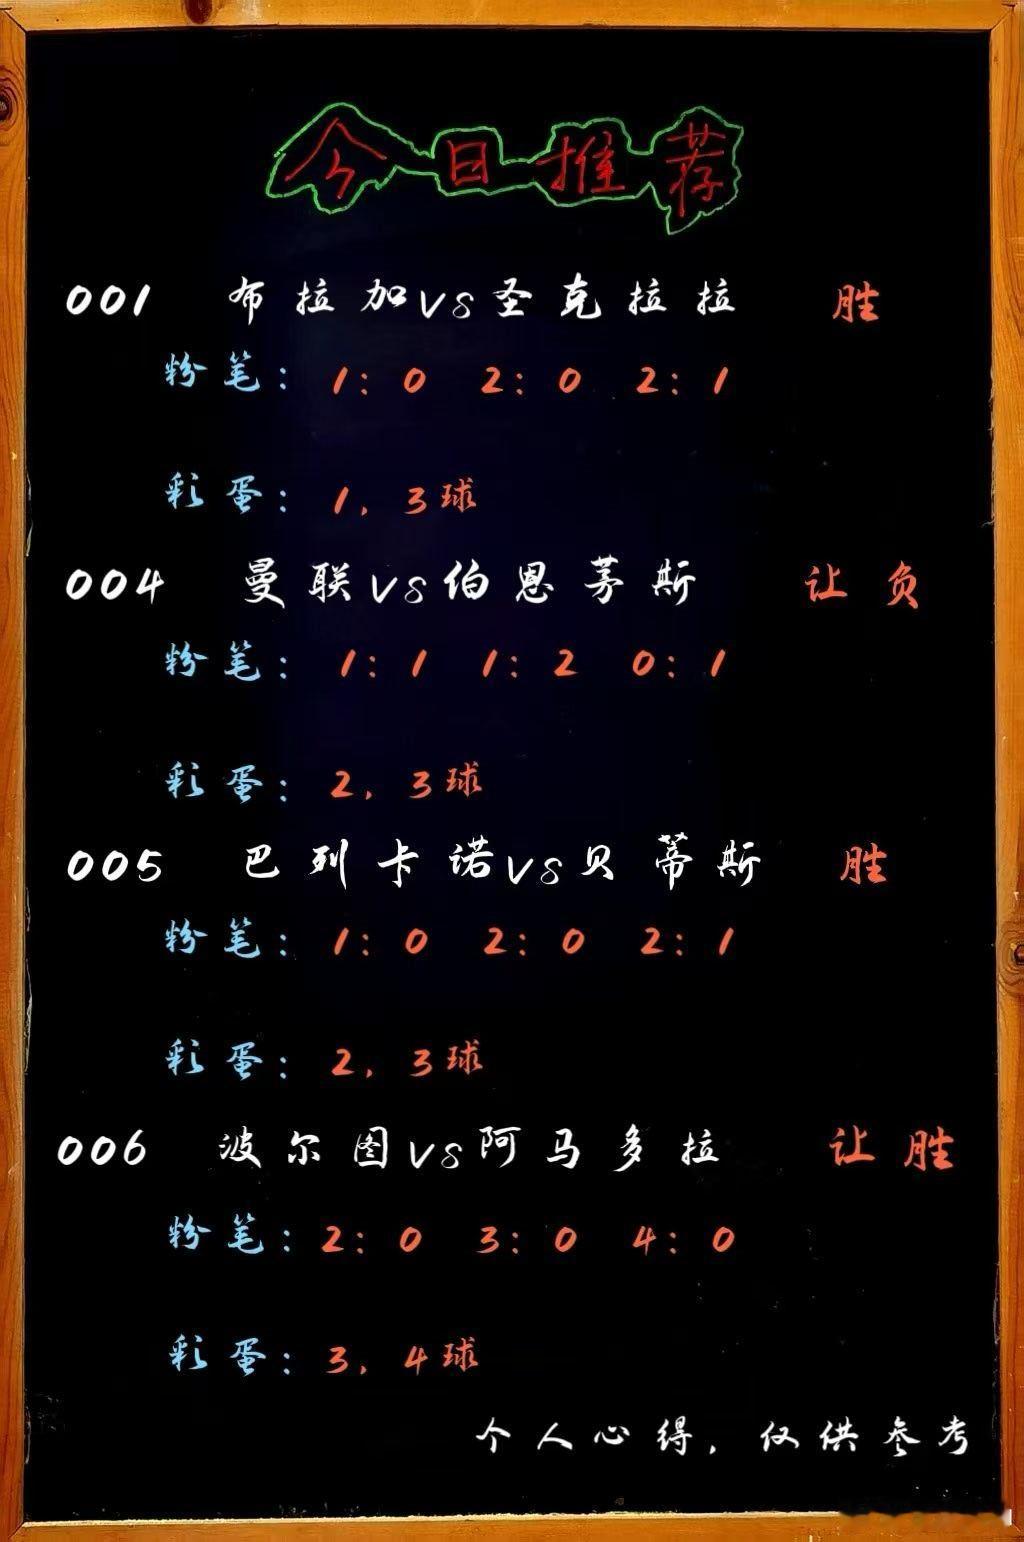 今日推荐
001 布拉加vs圣克拉拉 胜
粉笔: 1:0 2:0 2:1
彩蛋: 1, 3球
004 曼联vs伯恩茅斯 让负
粉笔: 1:1 1:2 0:1
彩蛋: 2, 3球
005 巴列卡诺vs贝蒂斯 胜
粉笔: 1:0 2:0 2:1
彩蛋: 2, 3球
006 波尔图vs阿马多拉 让胜
粉笔: 2:0 3:0 4:0
彩蛋: 3, 4球
个人心得, 仅供参考